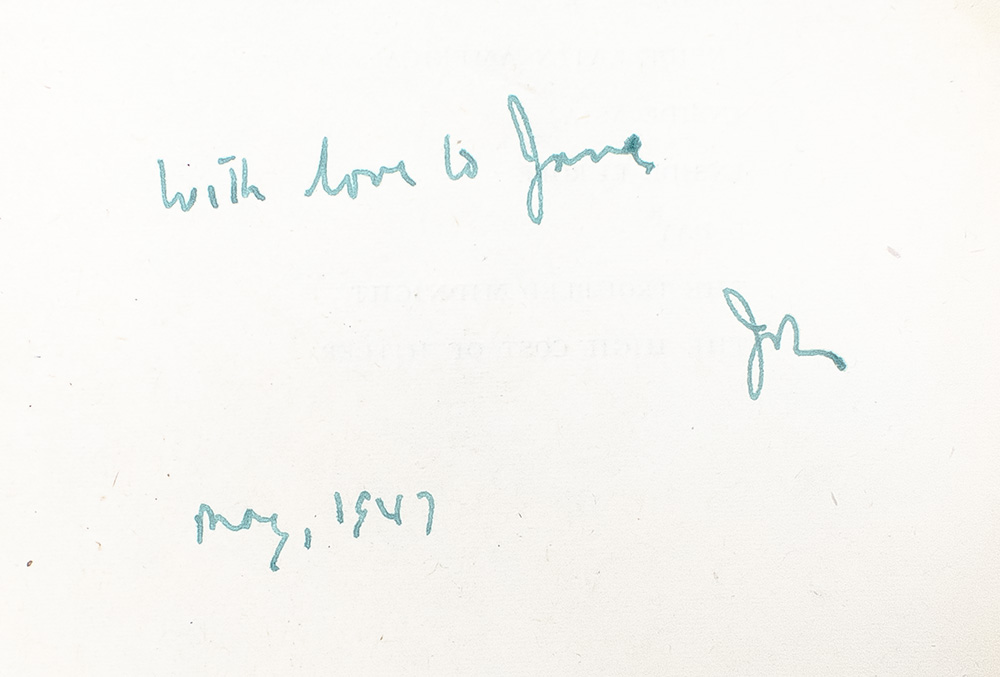 With love to Jane,
John
May, 1947